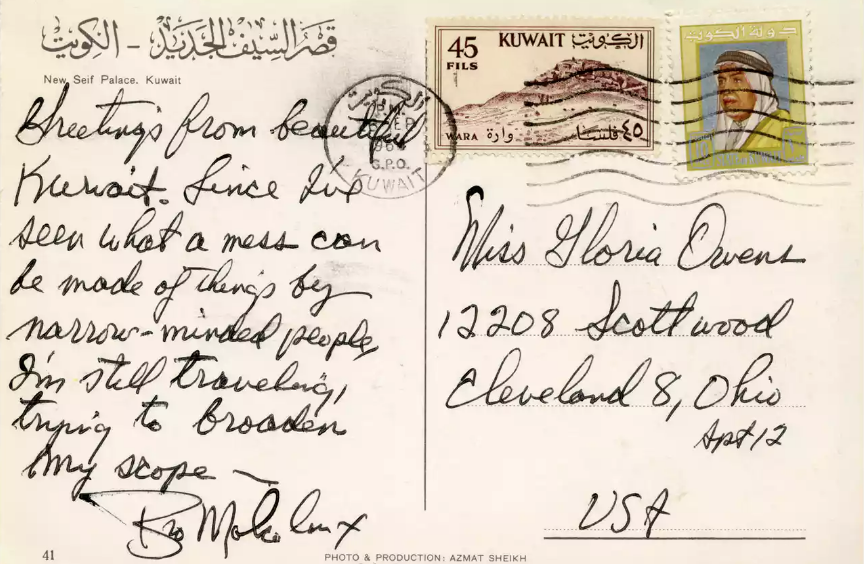 قصر السيف الجديد - الكويت
New Seif Palace. Kuwait
Greetings from beautiful
Kuwait. Since I've
seen what a mess can
be made of things by
narrow-minded people,
I'm still traveling,
trying to broaden
my scope —
Bro Malcolm X
41
PHOTO & PRODUCTION: AZMAT SHEIKH
الكويت
G.P.O.
KUWAIT
45 KUWAIT الكويت
FILS
WARA وارة ٤٥ فلسا
دولة الكويت
Miss Gloria Owens
12208 Scottwood
Cleveland 8, Ohio
Apt 12
USA